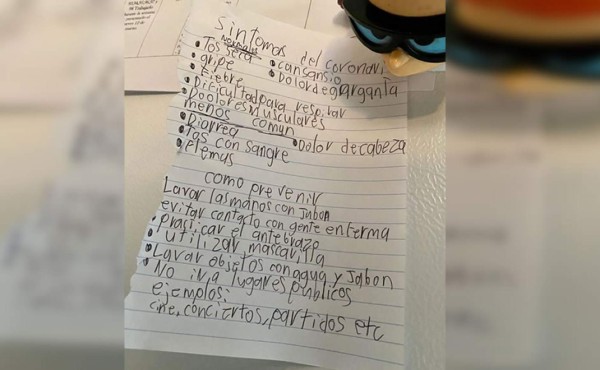 sintomas del coronavi
normales
• Tos seca • cansansio
• gripe • Dolor de garganta
• Fiebre
• Dificultad para respirar
• Doolores musculares
menos comun
• Diarrea • Dolor de cabeza
• tos con sangre
• flemas
como prevenir
Lavar las manos con jabon
evitar contacto con gente enferma
• prasticar el antebrazo
• utilizar mascarilla
• Lavar objetos con agua y Jabon
• No ir a lugares publicos
ejemplos:
cine, conciertos, partidos etc